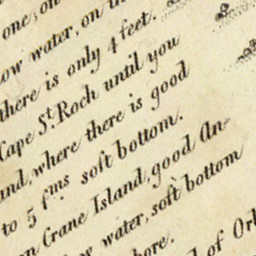 one, on
ow water, on th
there is only 4 feet.
Cape St. Roch until you
and, where there is good
to 5 f.ms soft bottom.
n Crane Island, good An-
w water, soft bottom
hore.
d of Orl